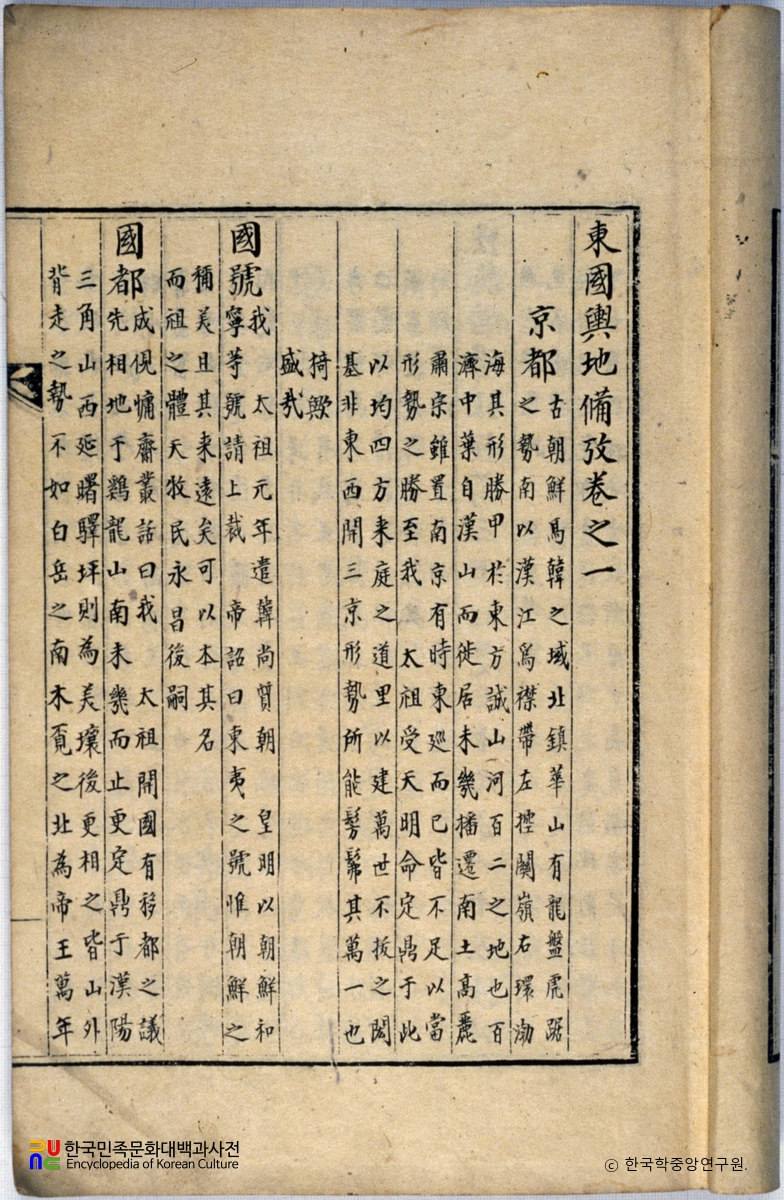 東國輿地備攷卷之一
京都
古朝鮮馬韓之域北鎮華山有龍盤虎踞
之勢南以漢江爲襟帶左控關嶺右環渤
海其形勝甲於東方誠山河百二之地也百
濟中葉自漢山而徙居未幾播遷南土高麗
肅宗雖置南京有時東巡而已皆不足以當
形勢之勝至我 太祖受天明命定鼎于此
以均四方来庭之道里以建萬世不拔之閎
基非東西開三京形勢所能髣髴其萬一也
猗歟
盛哉
國號
我 太祖元年遣韓尚質朝 皇明以朝鮮和
寧等號請上裁 帝詔曰東夷之號惟朝鮮之
稱美且其来遠矣可以本其名
而祖之體天牧民永昌後嗣
國都
成俔慵齋叢話曰我 太祖開國有移都之議
先相地于鷄龍山南未幾而止更定鼎于漢陽
三角山西延曙驛坪則為美壤後更相之皆山外
背走之勢不如白岳之南木覓之北為帝王萬年
한국민족문화대백과사전
Encyclopedia of Korean Culture
ⓒ 한국학중앙연구원.